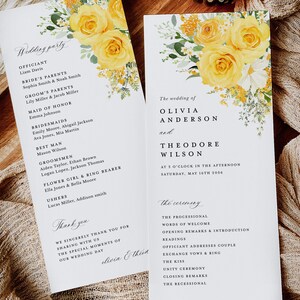 Wedding party
OFFICIANT
Liam Davis
BRIDE'S PARENTS
Sophia Smith & Noah Smith
GROOM'S PARENTS
Lily Miller & Jacob Miller
MAID OF HONOR
Emma Johnson
BRIDESMAIDS
Emily Moore, Abigail Jackson
Ava Jones, Mia Martin
BEST MAN
Mason Williams
GROOMSMEN
Aiden Taylor, Ethan Brown
Logan Lopez, Jackson Thomas
FLOWER GIRL & RING BEARER
Ella Jones & Bella Moore
USHERS
Lucas Miller, Addison smith
Thank you
WE SINCERELY THANK YOU FOR
SHARING WITH US
THE SPECIAL MOMENTS
OF OUR WEDDING DAY
olivia &
The wedding of
OLIVIA
ANDERSON
and
THEODORE
WILSON
AT 3 O'CLOCK IN THE AFTERNOON
SATURDAY, MAY 18TH 2024
the ceremony
THE PROCESSIONAL
WORDS OF WELCOME
OPENING REMARKS & INTRODUCTION
READINGS
OFFICIANT ADDRESSES COUPLE
EXCHANGE VOWS & RING
THE KISS
UNITY CEREMONY
CLOSING REMARKS
THE RECESSIONAL